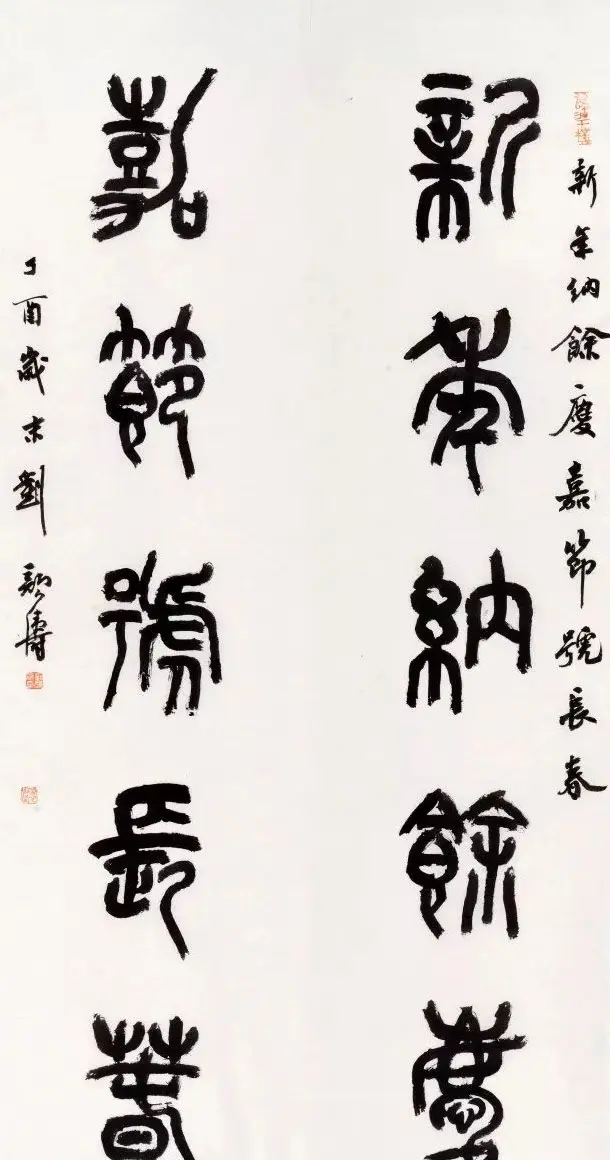 新年納餘慶嘉節號長春
新年納餘慶
嘉節號長春
丁酉歲末劉顏濤